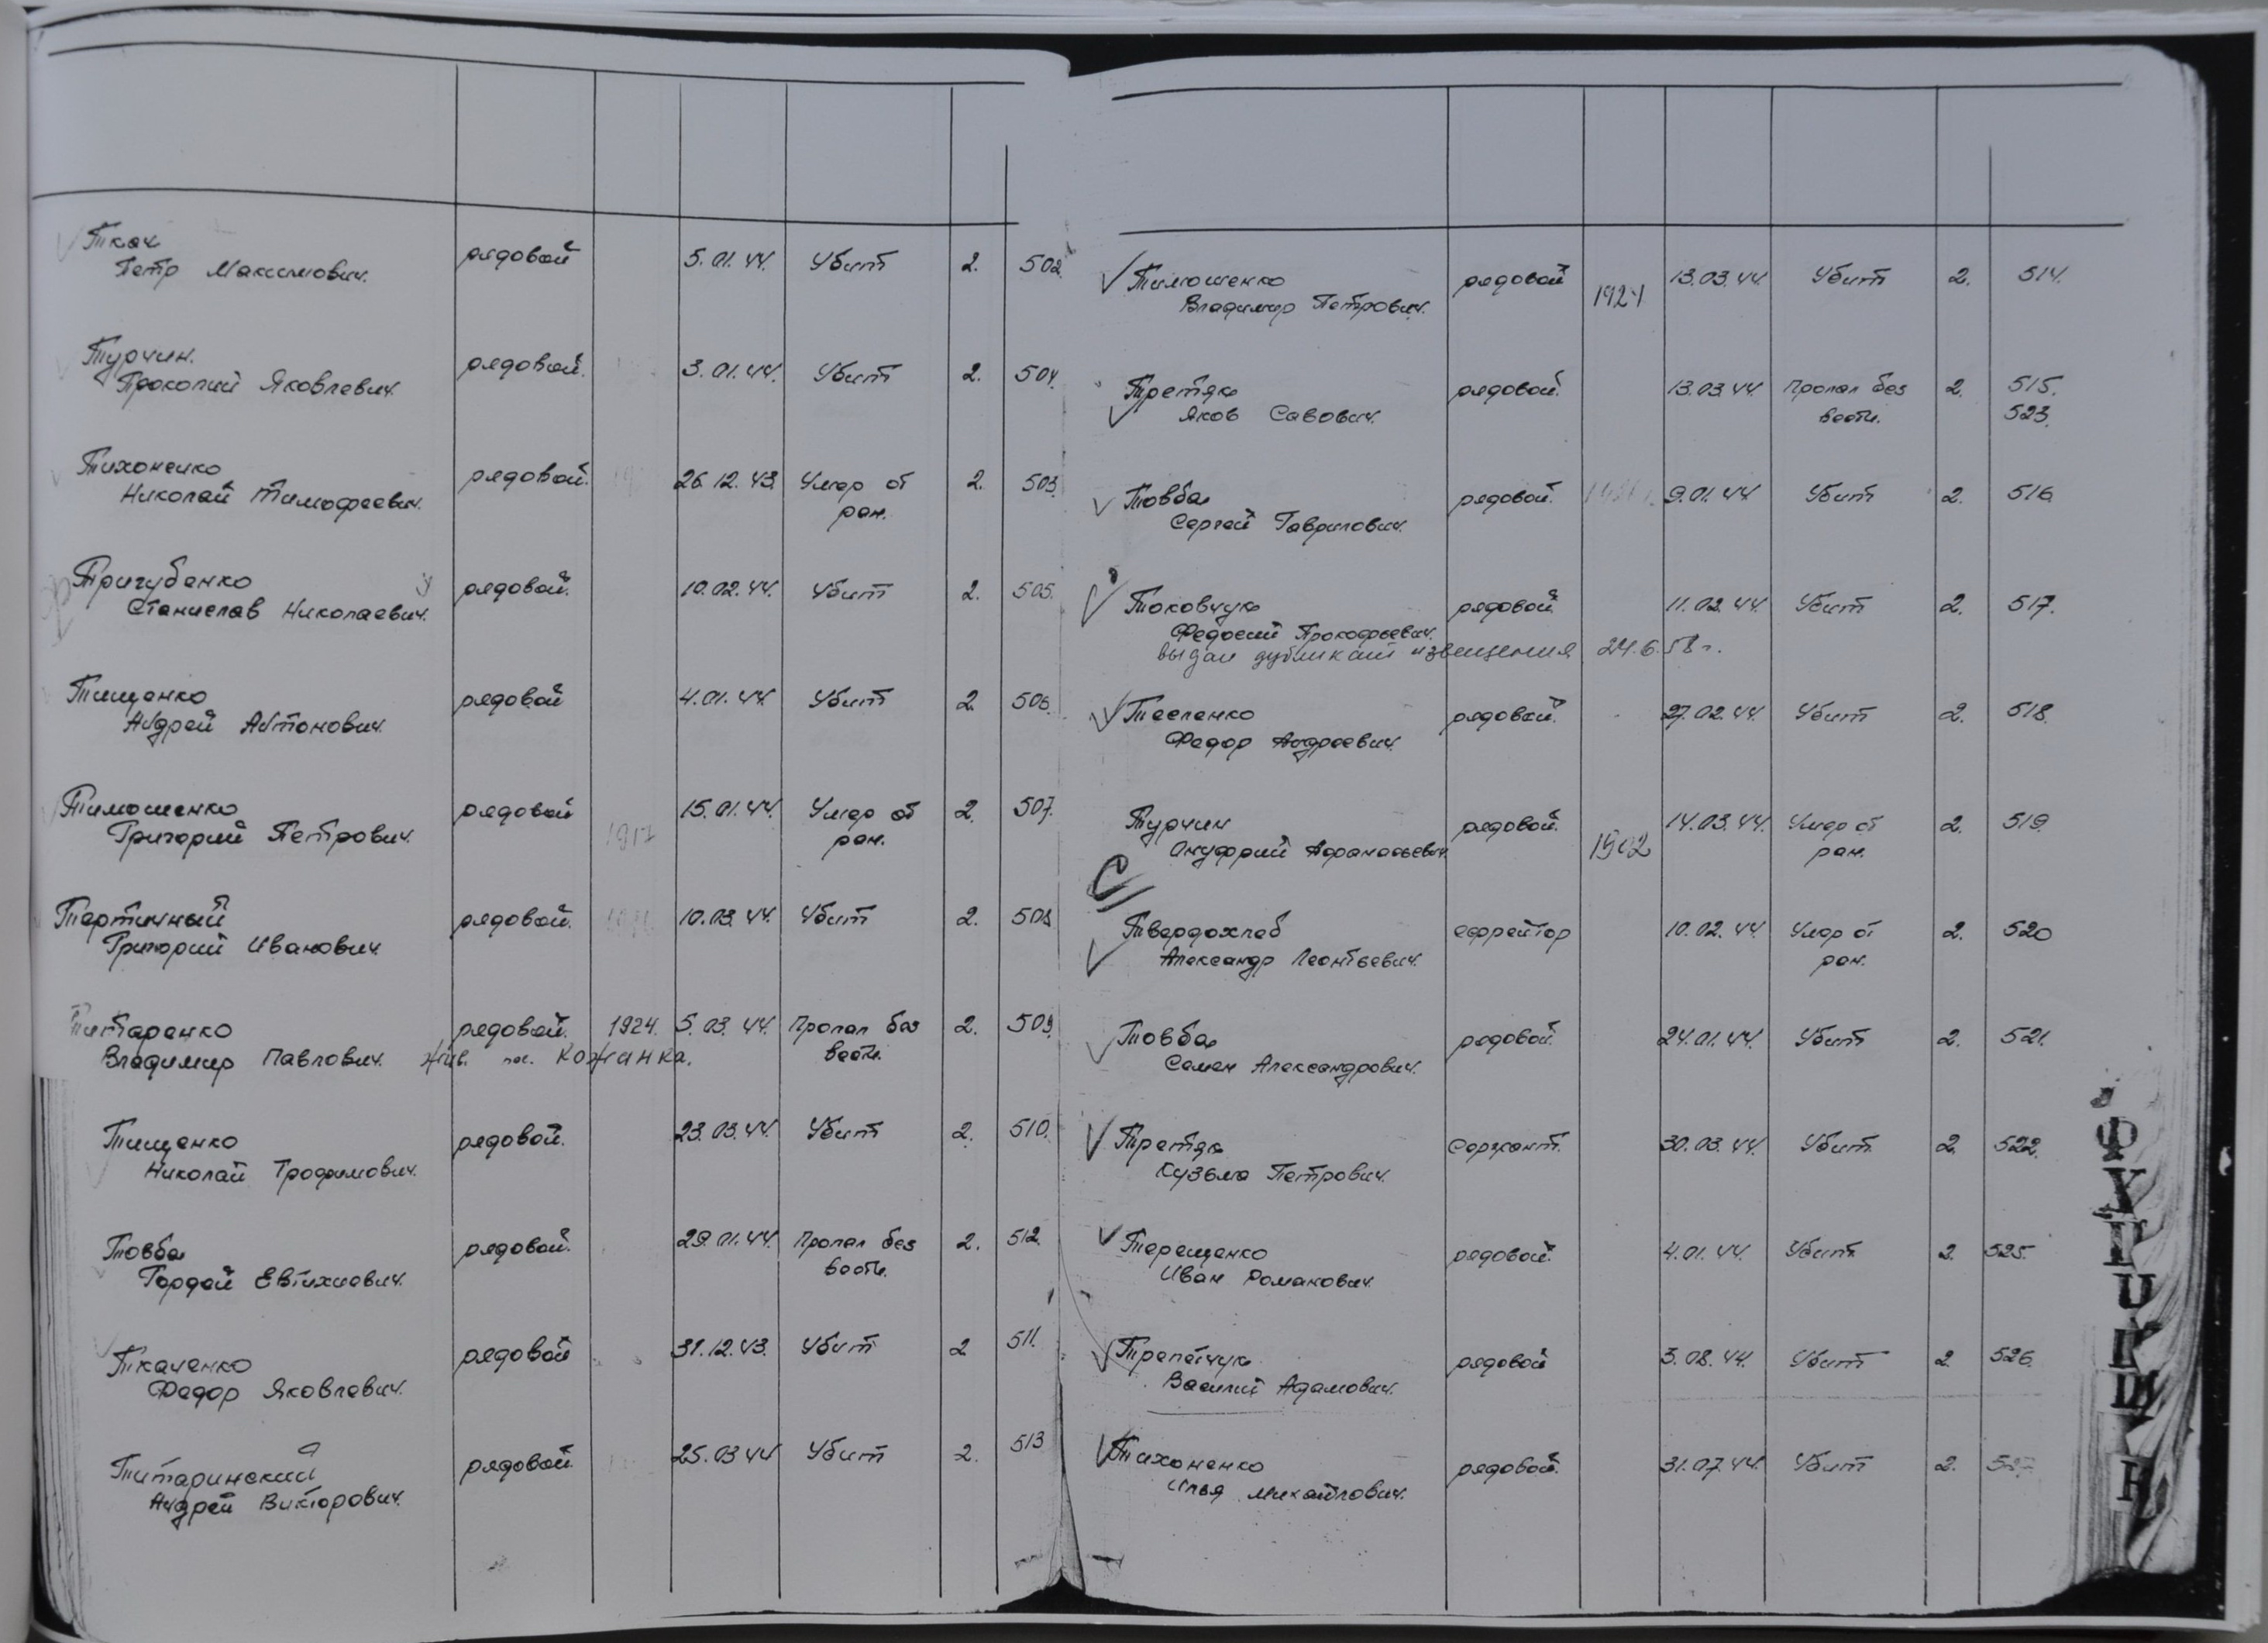 Ткач рядовой 5.01.44. Убит 2. 502.
Петр Максимович.
Турчин. рядовой. 3.01.44. Убит 2. 504.
Прокопий Яковлевич.
Тихоненко рядовой. 26.12.43. Умер от 2. 503.
Николай Тимофеевич. ран.
Тригубенко рядовой. 10.02.44. Убит 2. 505.
Станислав Николаевич.
Тищенко рядовой 4.01.44. Убит 2. 506.
Андрей Антонович.
Тимошенко рядовой 15.01.44. Умер от 2. 507.
Григорий Петрович. 1917 ран.
Тертичный рядовой. 10.03.44. Убит 2. 508
Григорий Иванович.
Титаренко рядовой. 1924. 5.03.44. Пропал без 2. 509.
Владимир Павлович. Жив. пос. Кожанка. вести.
Тищенко рядовой. 23.03.44. Убит 2. 510.
Николай Трофимович.
Товба рядовой. 29.01.44. Пропал без 2. 512.
Гордей Евтихиевич. вести.
Ткаченко рядовой 31.12.43. Убит 2 511.
Федор Яковлевич.
Титаринский рядовой 25.03 44 Убит 2. 513
Андрей Викторович.
Тимошенко рядовой 13.03.44. Убит 2. 514.
Владимир Петрович. 1924
Третяк рядовой. 13.03.44. Пропал без 2. 515.
Яков Савович. вести. 523.
Товба рядовой. 9.01.44 Убит 2. 516.
Сергей Гаврилович.
Токовчук рядовой. 11.02.44. Убит 2. 517.
Федосий Прокофьевич.
выдан дубликат извещения 24.6.58 г.
Тесленко рядовой. 27.02.44. Убит 2. 518.
Федор Андреевич.
Турчин рядовой. 14.03.44. Умер от 2. 519.
Онуфрий Афанасьевич. 1902 ран.
Твердохлеб ефрейтор 10.02.44. Умер от 2. 520
Александр Леонтьевич. ран.
Товба рядовой. 24.01.44. Убит 2. 521.
Семен Александрович.
Третяк сержант. 30.03.44. Убит 2. 522.
Кузьма Петрович.
Терещенко рядовой. 4.01.44. Убит 2. 525.
Иван Романович.
Трепетчук рядовой 3.08.44. Убит 2. 526.
Василий Адамович.
Тихоненко рядовой. 31.07.44. Убит 2. 527.
Илья Михайлович.